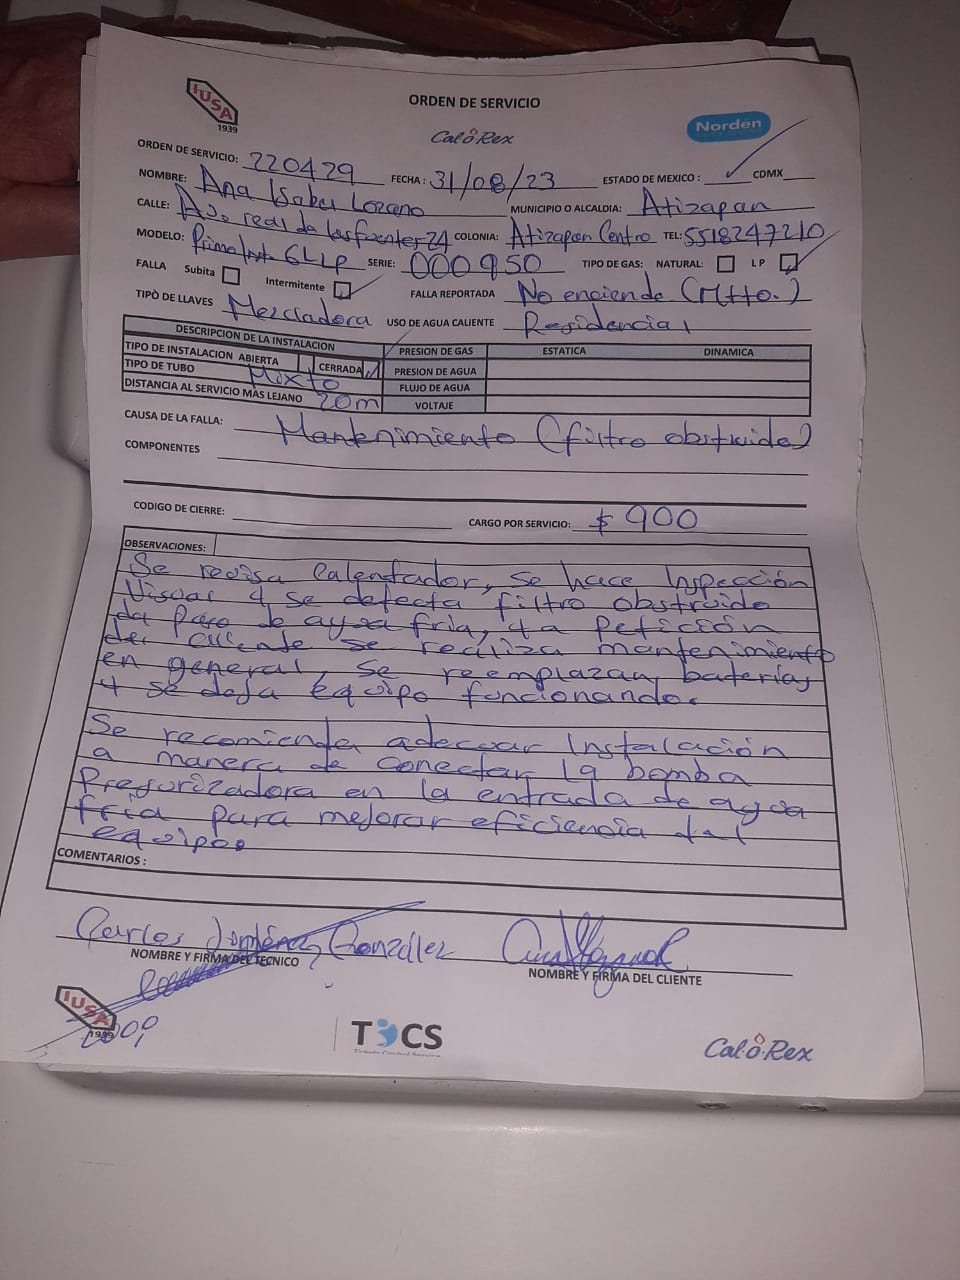 IUSA
1939
ORDEN DE SERVICIO
Cal-o-Rex
Norden
ORDEN DE SERVICIO: 220429 FECHA: 31/08/23 ESTADO DE MEXICO: CDMX
NOMBRE: Ana Isabel Lozano MUNICIPIO O ALCALDIA: Atizapan
CALLE: real de las fuentes 24 COLONIA: Atizapan Centro TEL: 5518247210
MODELO: 6L LP SERIE: 000950 TIPO DE GAS: NATURAL: LP
FALLA Subita Intermitente FALLA REPORTADA No enciende (Mtto.)
TIPO DE LLAVES Mezcladora USO DE AGUA CALIENTE Residencial
DESCRIPCION DE LA INSTALACION PRESION DE GAS ESTATICA DINAMICA
TIPO DE INSTALACION ABIERTA CERRADA PRESION DE AGUA
TIPO DE TUBO Mixto FLUJO DE AGUA
DISTANCIA AL SERVICIO MAS LEJANO 20m VOLTAJE
CAUSA DE LA FALLA: Mantenimiento (filtro obstruido)
COMPONENTES
CODIGO DE CIERRE: CARGO POR SERVICIO: $900
OBSERVACIONES:
Se revisa Calentador, se hace Inspección
Visual y se detecta filtro obstruido
de paso de agua fria, y a petición
del cliente se realiza mantenimiento
en general, se reemplazan baterias
y se deja equipo funcionando.
Se recomienda adecuar Instalación
a manera de conectar la bomba
Presurizadora en la entrada de agua
fria para mejorar eficiencia del
equipo.
COMENTARIOS:
Carlos Jiménez González
NOMBRE Y FIRMA DEL TECNICO
NOMBRE Y FIRMA DEL CLIENTE
IUSA
1939
TCS
Cal-o-Rex